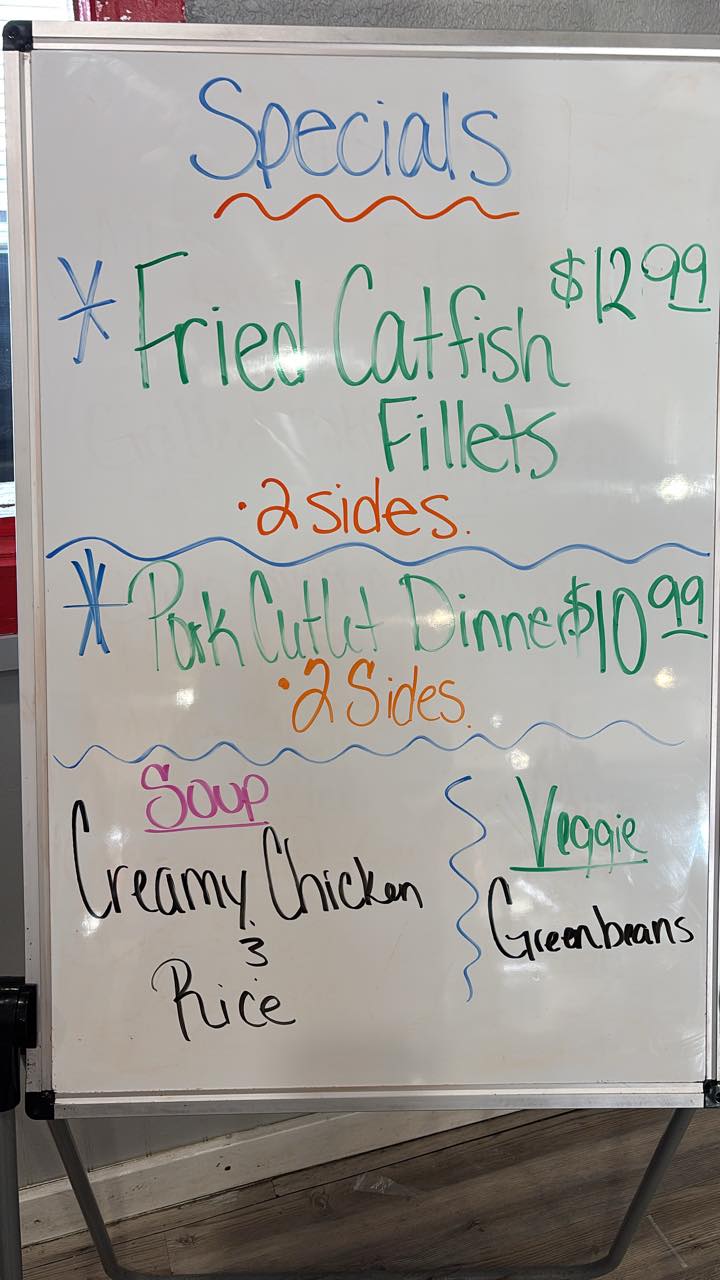 Specials
* Fried Catfish $12.99
Fillets
• 2 sides.
* Pork Cutlet Dinner $10.99
• 2 Sides.
Soup
Creamy Chicken
&
Rice
Veggie
Greenbeans